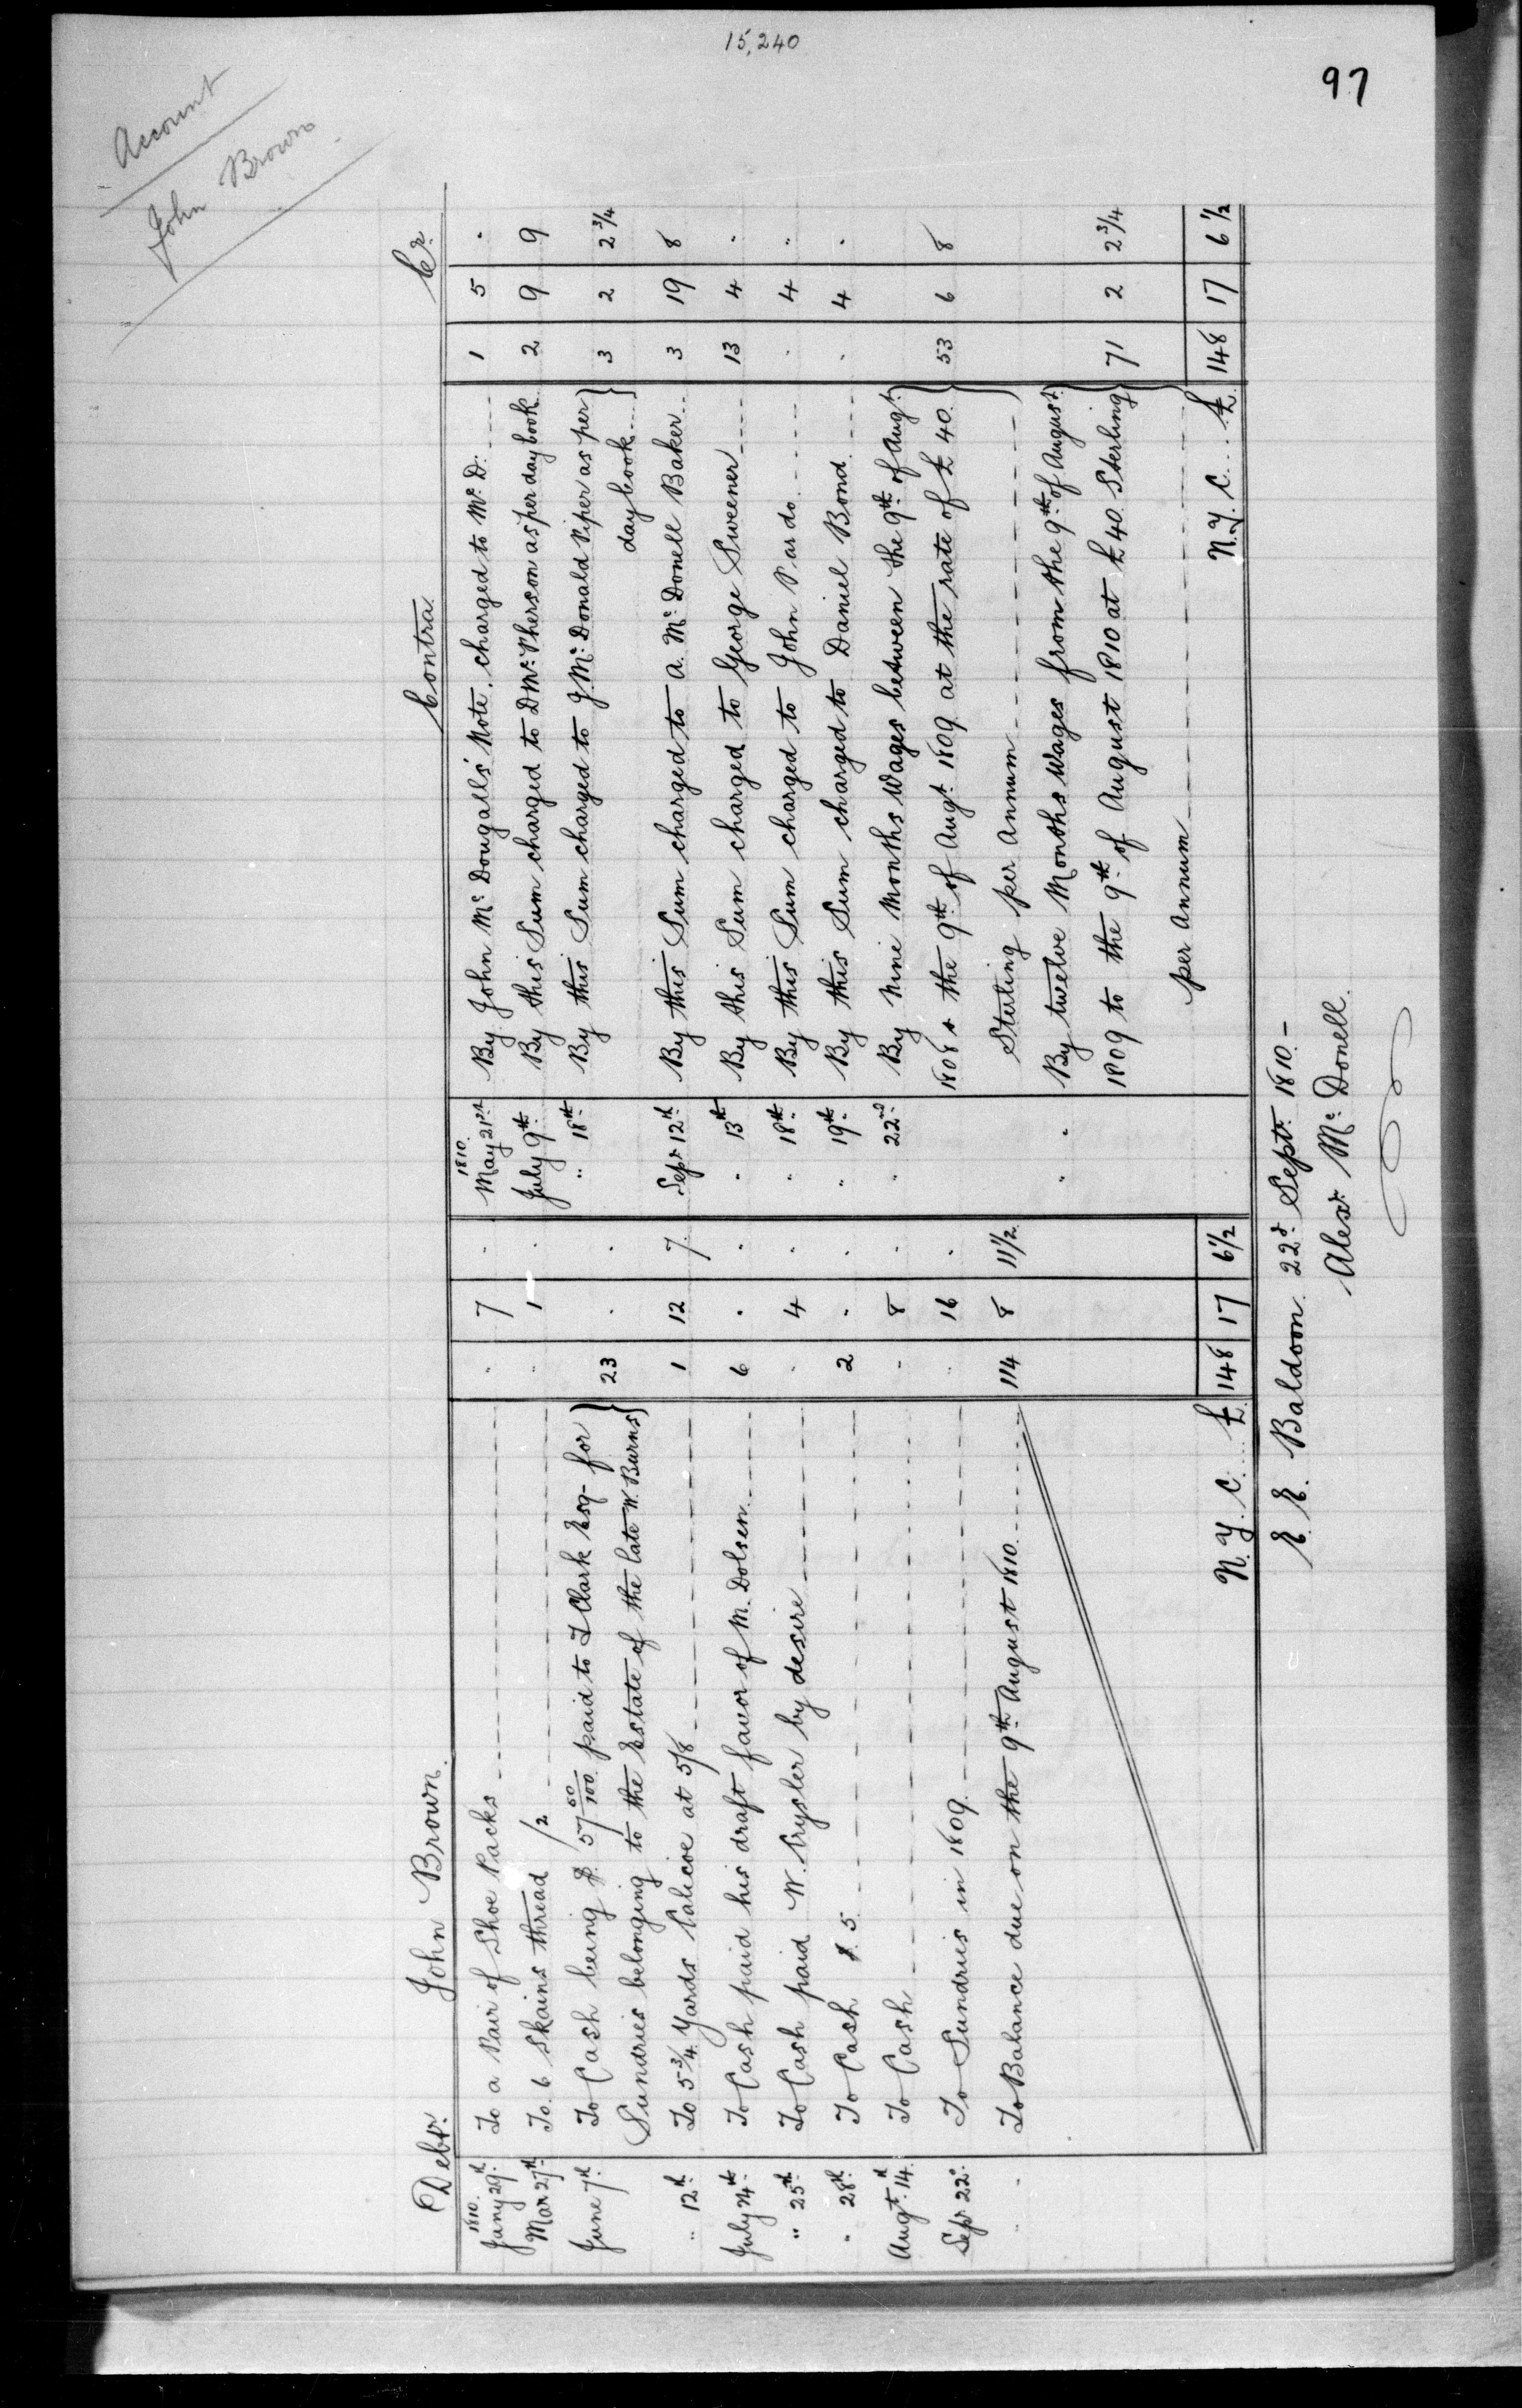 15,240
97
Account
John Brown
Debr. John Brown.
1810.
Jany 29th To a Pair of Shoe Packs . 7 .
Mar 27th To 6 Skains thread /2 . 1 .
June 7th To Cash being $ 57 50/100 paid to I Clark Esq- for
Sundries belonging to the Estate of the late W. Burns } 23 . .
" 12th To 5 3/4 Yards Calicoe at 5/8 1 12 7
July 24th To Cash paid his draft favor of M. Dolsen 6 . .
" 25th To Cash paid W. Crysler by desire . 4 .
" 28th To Cash $ 5 2 . .
Augt. 14th To Cash . 8 .
Sepr 22d To Sundries in 1809 . 16 .
" To Balance due on the 9th August 1810 114 8 11 1/2
N. Y. C. £ 148 17 6 1/2
Contra. Cr.
1810.
May 21st By John Mc Dougalls' Note, charged to Mc D. 1 5 .
July 9th By this Sum charged to D Mc Pherson as per day book 2 9 9
" 18th By this Sum charged to J Mc Donald Piper as per
day book } 3 2 2 3/4
Sepr 12th By this Sum charged to A. Mc Donell Baker 3 19 8
" 13th By this Sum charged to George Sweener 13 4 .
" 18th By this Sum charged to John Pardo . 4 "
" 19th By this Sum charged to Daniel Bond . 4 .
" 22nd By Nine Months Wages between the 9th of Augt.
1808 & the 9th of Augt. 1809 at the rate of £ 40. 53 6 8
Sterling per Annum
" . By twelve Months Wages from the 9th of August
1809 to the 9th of August 1810 at £ 40. Sterling 71 2 2 3/4
per Annum
N. Y. C. £ 148 17 6 1/2
E. E. Baldoon 22d Septr. 1810 -
Alexr. Mc Donell.